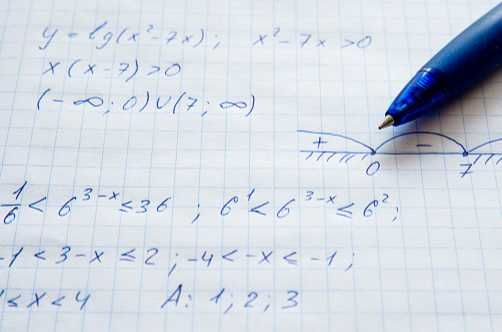 y = lg(x²-7x); x²-7x>0
x(x-7)>0
(-∞; 0)∪(7; ∞)
+ -
0 7
1/6 < 6³⁻ˣ ≤ 36 ; 6¹ < 6³⁻ˣ ≤ 6²;
-1 < 3-x ≤ 2 ; -4 < -x ≤ -1 ;
≤ x < 4 A: 1; 2; 3